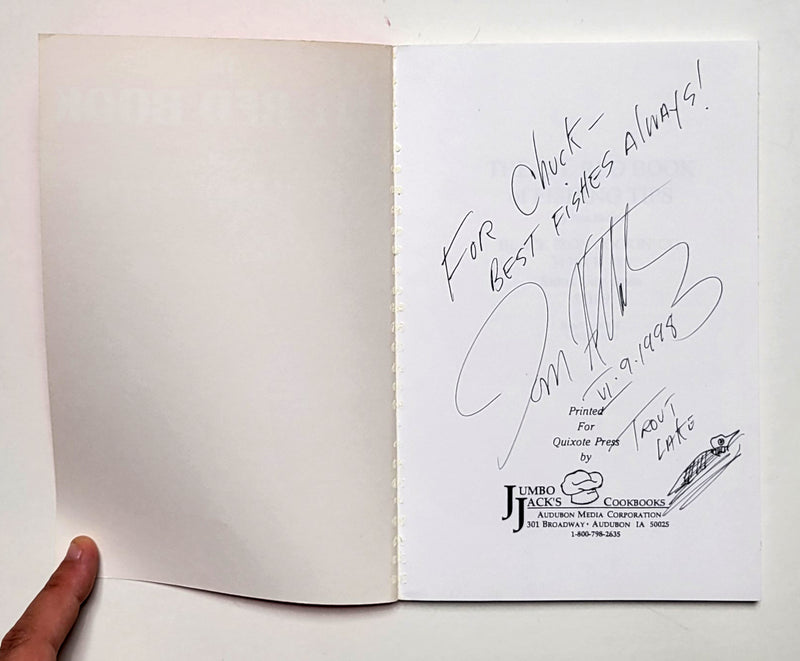 FOR Chuck-
BEST FISHES ALWAYS!
VI.9.1998
TROUT
LAKE
Printed
For
Quixote Press
by
JUMBO
JACK'S COOKBOOKS
AUDUBON MEDIA CORPORATION
301 BROADWAY • AUDUBON IA 50025
1-800-798-2635